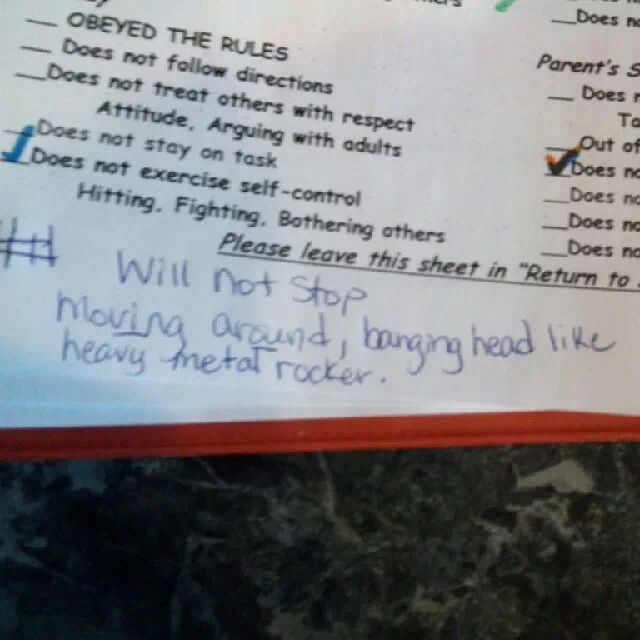 Does n
__ OBEYED THE RULES
__ Does not follow directions
__Does not treat others with respect
Attitude, Arguing with adults
__Does not stay on task
__Does not exercise self-control
Hitting, Fighting, Bothering others
Parent's S
__ Does r
Ta
__Out of
__Does no
__Does no
__Does no
__Does no
Please leave this sheet in "Return to
Will not stop
moving around, banging head like
heavy metal rocker.